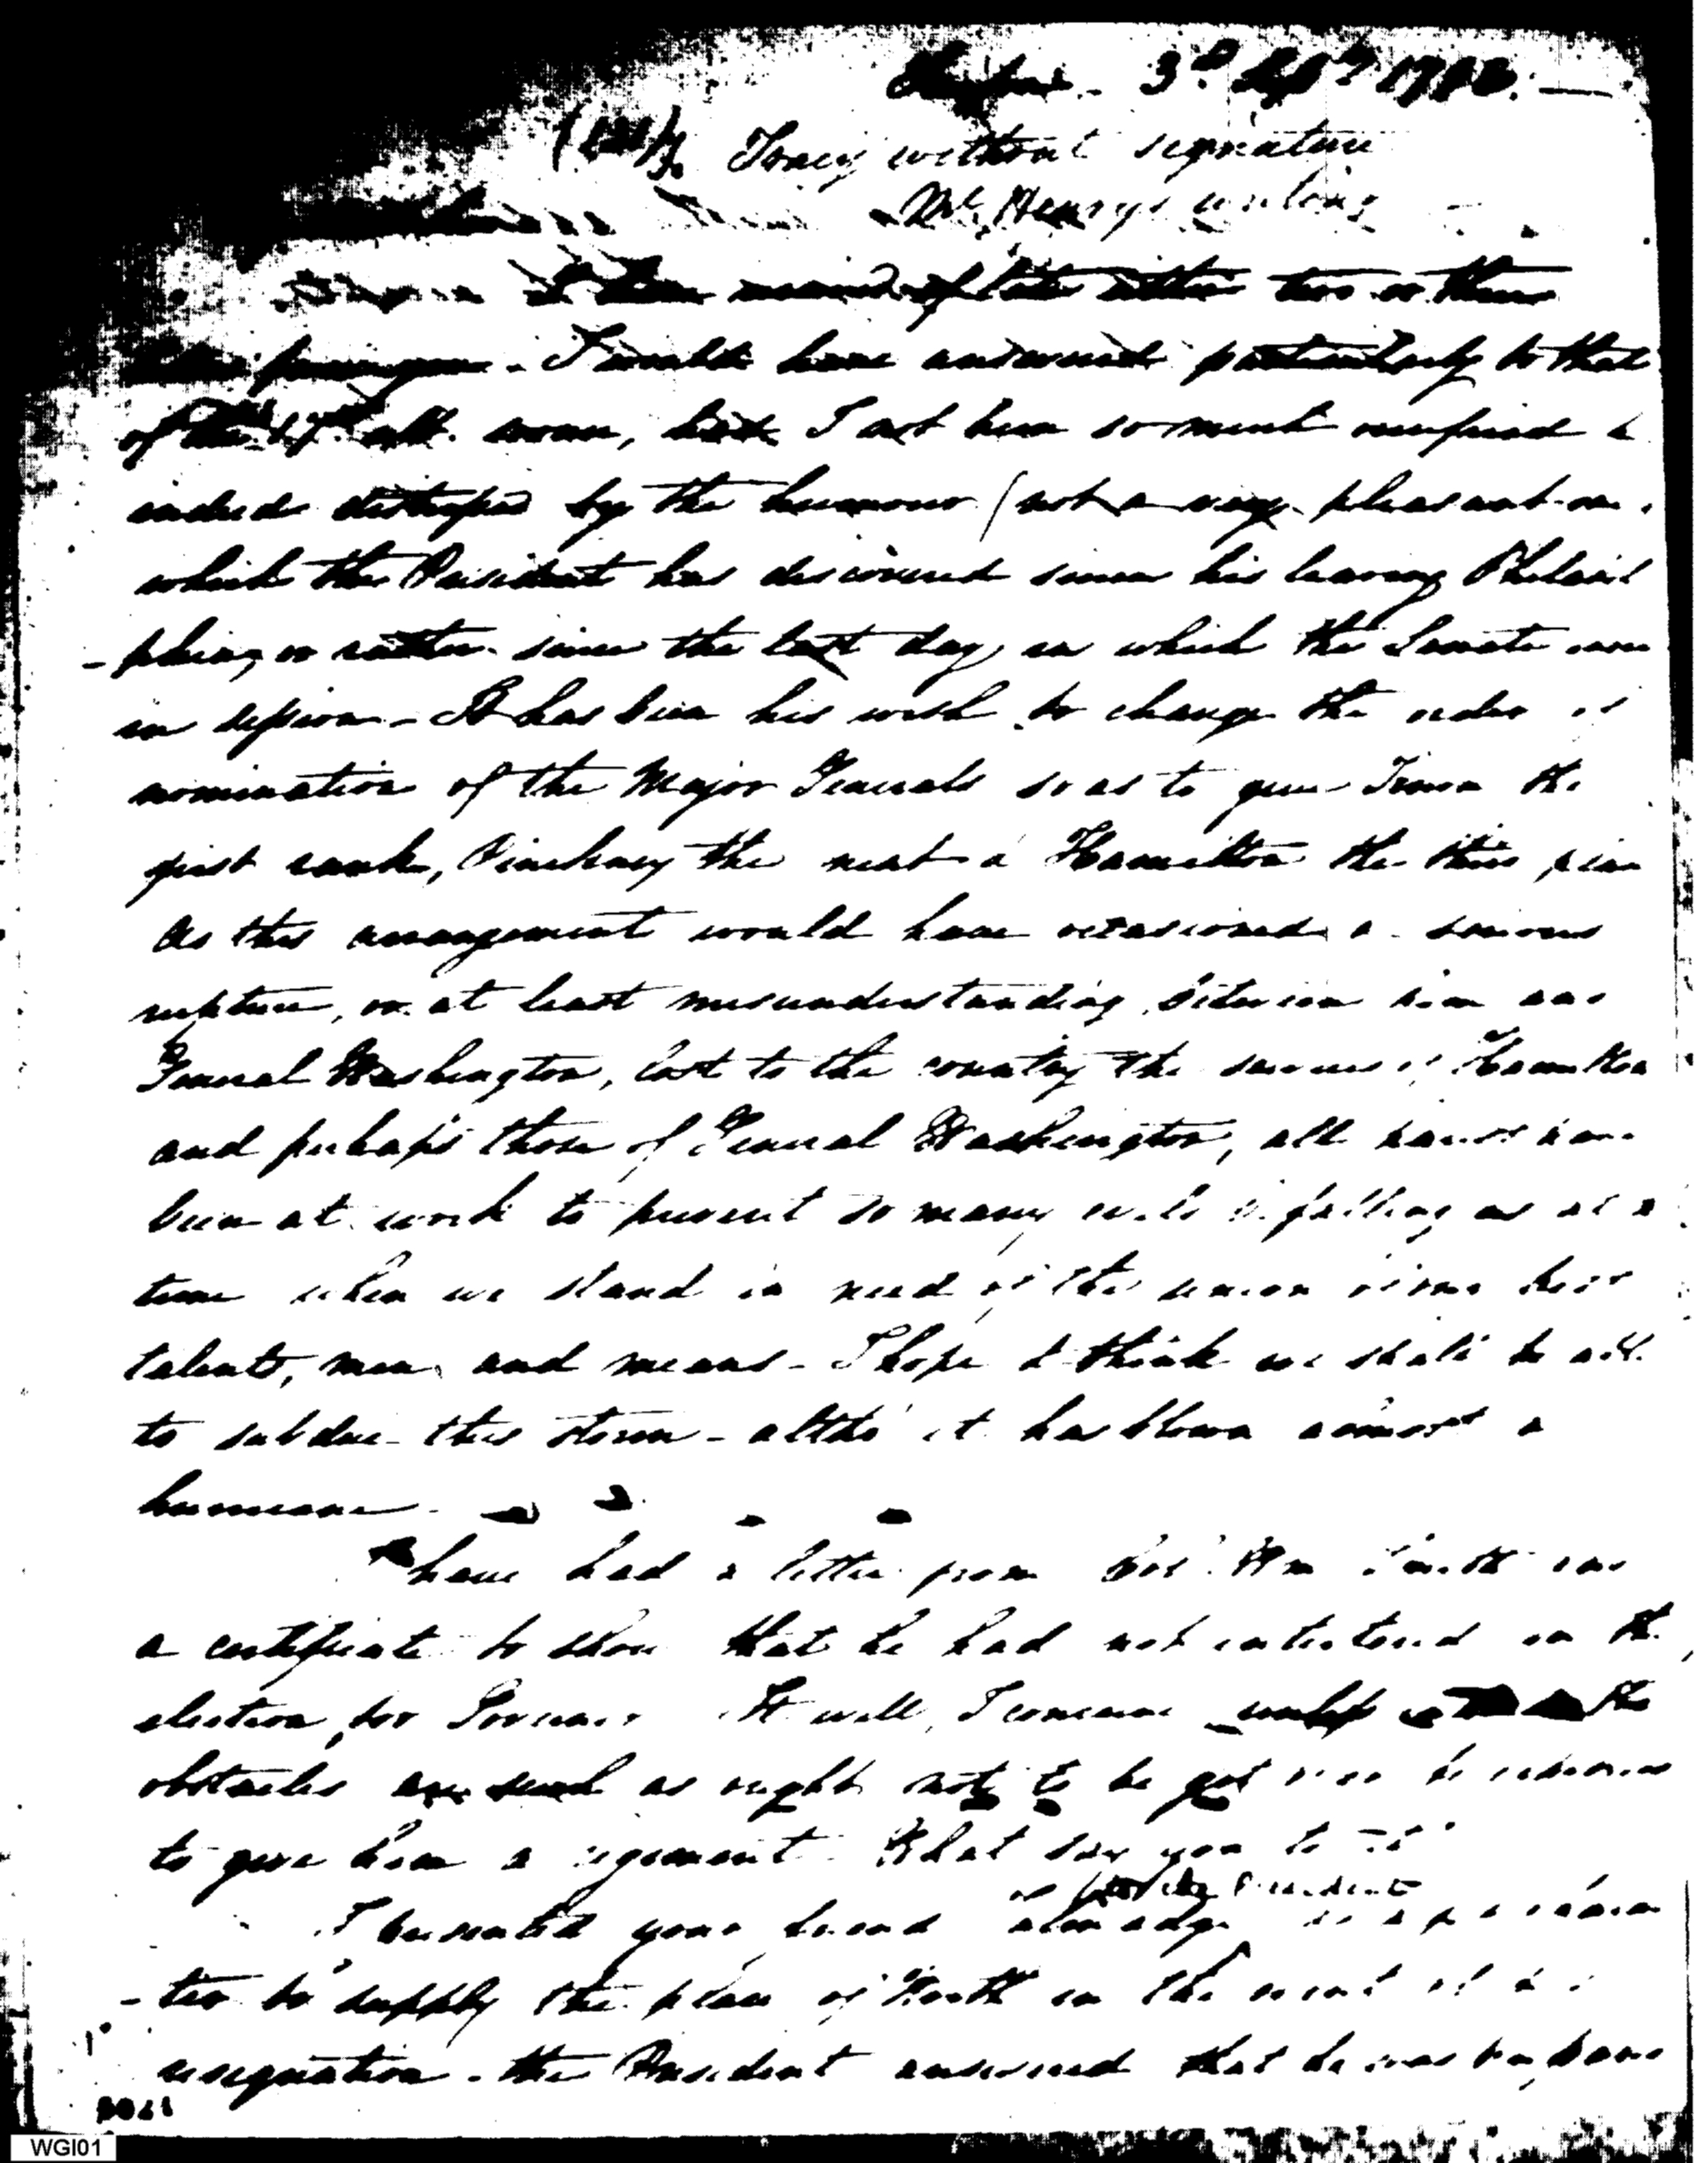 3d. Sepr. 1798. —
Tracy without signature
McHenry's writing
received of late either two or three
I would have answered particularly to that
of the 17th ult. sooner, but I ast been so much occupied &
indeed distressed by the humour (not a very pleasant one,
which the President has discovered since his leaving Philadel
-phia, or rather since the last day in which the Senate were
in session - It has been his wish to change the order of
nomination of the Major Generals so as to give Knox the
first rank, Pinckney the next & Hamilton the third place
As this arrangement would have occasioned a serious
rupture, or at least misunderstanding, between him and
General Washington, lost to the country the services of Hamilton
and perhaps those of General Washington, all hands have
been at work to prevent so many evils befalling us at a
time when we stand in need of the union of our best
talents, men and means - I hope & think we shall be able
to subdue this storm - altho' it has blown almost a
hurricane -
have had a letter from Col. Wm Smith and
a certificate to shew that he had not interfered in the
election for Governor It will, I conceive unless the
obstacles are such as ought not to be got over be
to give him a regiment - What say you to it
for the President
I presented your friend
to supply the place of North in the event of his
resignation - the President answered that he was
WGI01